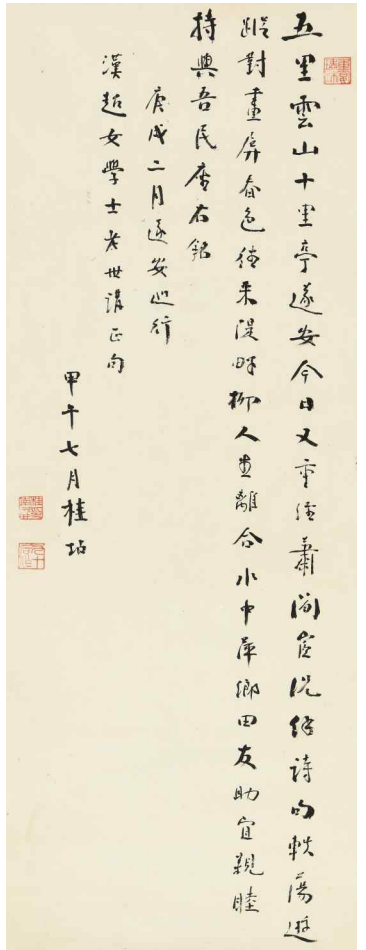 五里雲山十里亭遂安今日又重經蕭閒官況餘詩句軼蕩遊
蹤對畫屏春色來隄畔柳人生離合水中萍鄉田友助宜親睦
持與吾民座右銘
庚戌二月遂安巡行
漢超女學士老世講正句
甲午七月桂坫